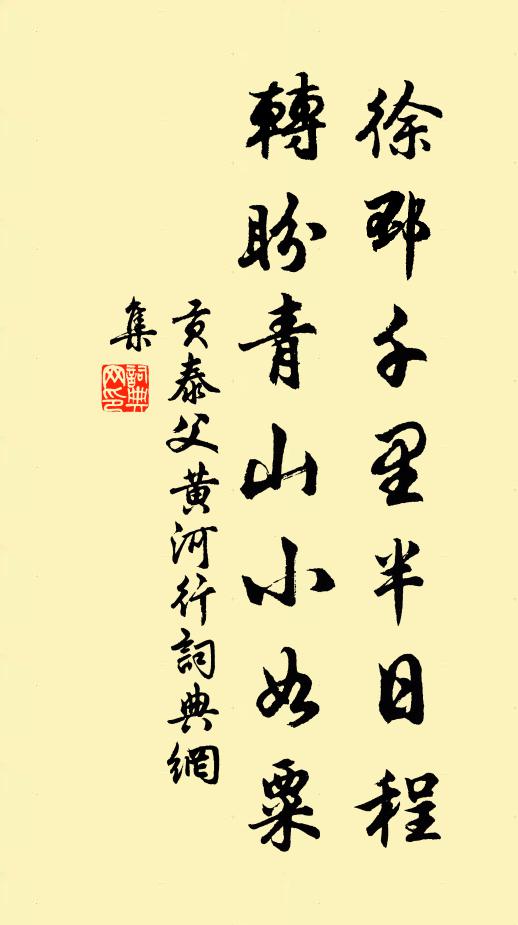 徐邳千里半日程
轉盼青山小如粟
貢泰父黃河行詞典網
集
詞典
网印